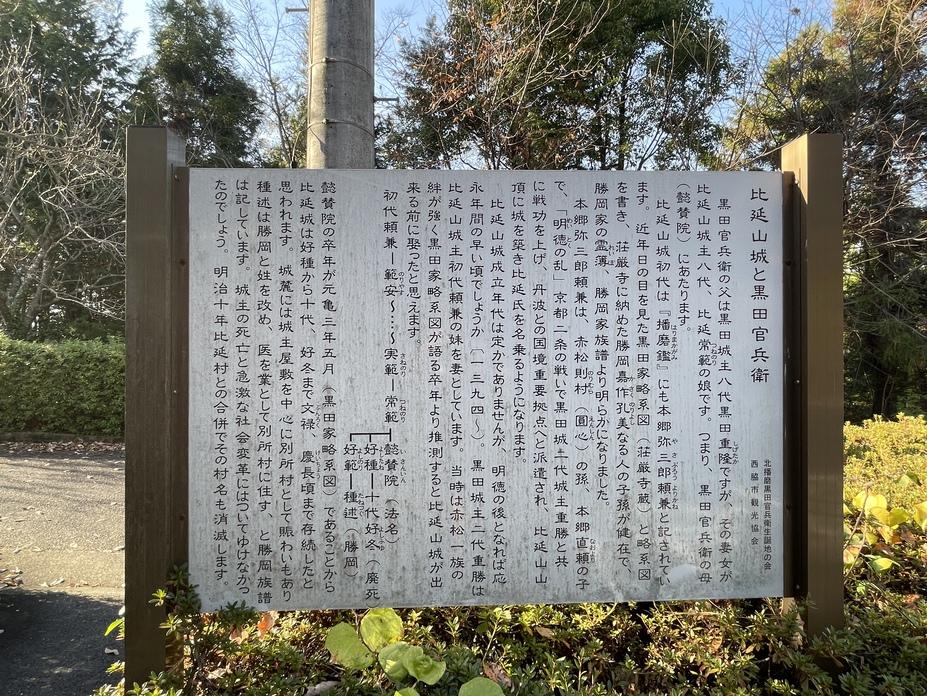 比延山城と黒田官兵衛
北播磨黒田官兵衛生誕地の会
西脇市観光協会
黒田官兵衛の父は黒田城主八代黒田重隆ですが、その妻女が
比延山城主八代、比延常範の娘です。つまり、黒田官兵衛の母
（懿賛院）にあたります。
比延山城初代は『播磨鑑』にも本郷弥三郎頼兼と記されてい
ます。近年日の目を見た黒田家略系図（荘厳寺蔵）と略系図
を書き、荘厳寺に納めた勝岡嘉作孔美なる人の子孫が健在で、
勝岡家の霊簿、勝岡家族譜より明らかになりました。
本郷弥三郎頼兼は、赤松則村（圓心）の孫、本郷直頼の子
で、「明徳の乱」京都二条の戦いで黒田城二代城主重勝と共
に戦功を上げ、丹波との国境重要拠点へと派遣され、比延山山
頂に城を築き比延氏を名乗るようになります。
比延山城成立年代は定かでありませんが、明徳の後となれば応
永年間の早い頃でしょうか（一三九四〜）。黒田城主二代重勝は
比延山城主初代頼兼の妹を妻としています。当時は赤松一族の
絆が強く黒田家略系図が語る卒年より推測すると比延山城が出
来る前に娶ったと思えます。
初代頼兼ー範安〜……〜実範ー常範
懿賛院（法名）
好種ー十代好冬（廃死）
好範ー種述（勝岡）
懿賛院の卒年が元亀三年五月（黒田家略系図）であることから
比延城は好種から十代、好冬まで文禄、慶長頃まで存続したと
思われます。城麓には城主屋敷を中心に別所村として賑わいもあり
種述は勝岡と姓を改め、医を業として別所村に住す、と勝岡族譜
は記しています。城主の死亡と急激な社会変革にはついてゆけなかっ
たのでしょう。明治十年比延村との合併でその村名も消滅します。